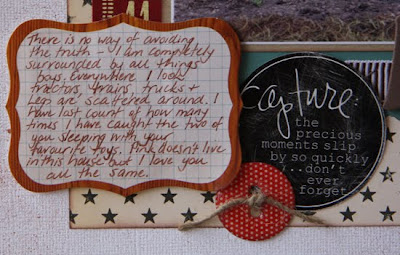 There is no way of avoiding
the truth - I am completely
surrounded by all things
boys. Everywhere I look
tractors, trains, trucks +
Legs are scattered around. I
have lost count of how many
times I have caught the two of
you sleeping with your
favourite toys. Pink doesn't live
in this house but I love you
all the same.
capture:
the
precious
moments slip
by so quickly
...don't
ever
forget